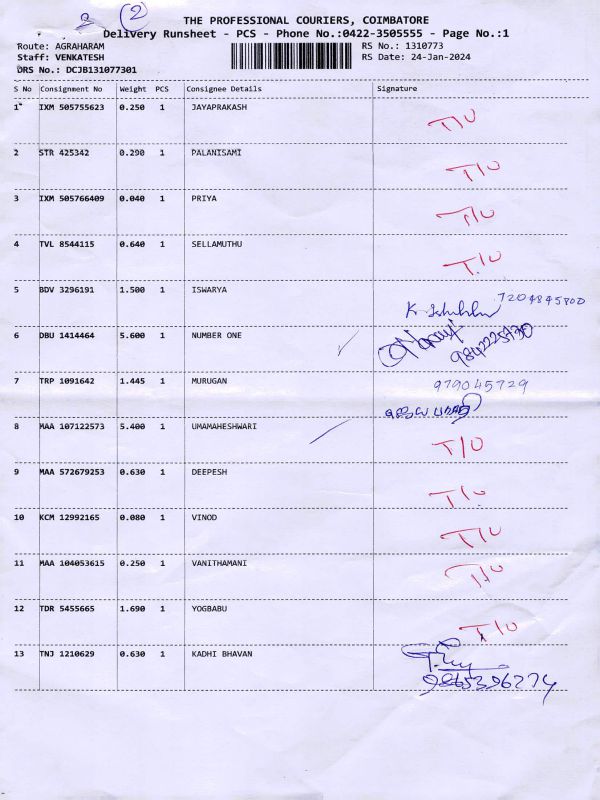 2 (2)
THE PROFESSIONAL COURIERS, COIMBATORE
Delivery Runsheet - PCS - Phone No.:0422-3505555 - Page No.:1
Route: AGRAHARAM RS No.: 1310773
Staff: VENKATESH RS Date: 24-Jan-2024
DRS No.: DCJB131077301
S No Consignment No Weight PCS Consignee Details Signature
1 IXM 505755623 0.250 1 JAYAPRAKASH T/U
2 STR 425342 0.290 1 PALANISAMI T/U
3 IXM 505766409 0.040 1 PRIYA T/U
4 TVL 8544115 0.640 1 SELLAMUTHU T/U
5 BDV 3296191 1.500 1 ISWARYA 7204845800
6 DBU 1414464 5.600 1 NUMBER ONE
7 TRP 1091642 1.445 1 MURUGAN 979045729
8 MAA 107122573 5.400 1 UMAMAHESHWARI T/U
9 MAA 572679253 0.630 1 DEEPESH T/U
10 KCM 12992165 0.080 1 VINOD T/U
11 MAA 104053615 0.250 1 VANITHAMANI T/U
12 TDR 5455665 1.690 1 YOGBABU T/U
13 TNJ 1210629 0.630 1 KADHI BHAVAN
9865396274